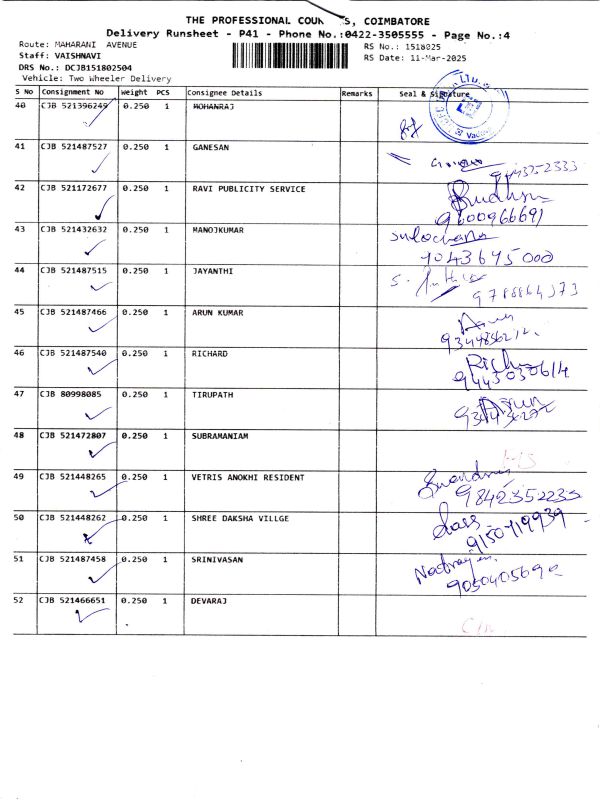 THE PROFESSIONAL COU S, COIMBATORE
Delivery Runsheet - P41 - Phone No.:0422-3505555 - Page No.:4
Route: MAHARANI AVENUE
RS No.: 1518025
Staff: VAISHNAVI
RS Date: 11-Mar-2025
DRS No.: DCJB151802504
Vehicle: Two Wheeler Delivery
S No Consignment No Weight PCS Consignee Details Remarks Seal & Signature
40 CJB 521396249 0.250 1 MOHANRAJ
41 CJB 521487527 0.250 1 GANESAN
42 CJB 521172677 0.250 1 RAVI PUBLICITY SERVICE
9600966691
43 CJB 521432632 0.250 1 MANOJKUMAR
Sulochana
44 CJB 521487515 0.250 1 JAYANTHI
45 CJB 521487466 0.250 1 ARUN KUMAR
46 CJB 521487540 0.250 1 RICHARD
9445030614
47 CJB 80998085 0.250 1 TIRUPATH
48 CJB 521472807 0.250 1 SUBRAMANIAM
49 CJB 521448265 0.250 1 VETRIS ANOKHI RESIDENT
9842352233
50 CJB 521448262 0.250 1 SHREE DAKSHA VILLGE
51 CJB 521487458 0.250 1 SRINIVASAN
52 CJB 521466651 0.250 1 DEVARAJ